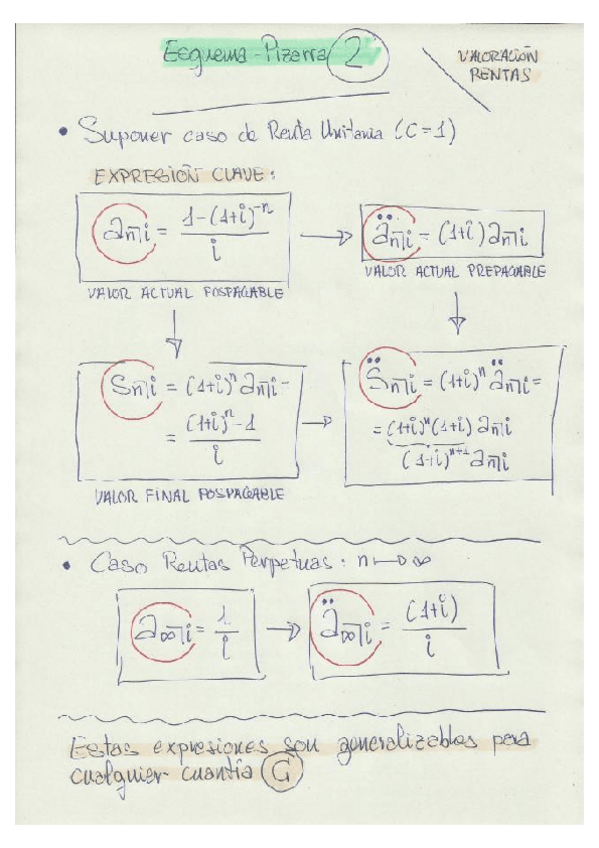 Esquema-Pizarra 2
VALORACIÓN
RENTAS
• Suponer caso de Renta Unitaria (C=1)
EXPRESIÓN CLAVE:
a n̅| i = 1-(1+i)^-n / i → ä n̅| i = (1+i) a n̅| i
VALOR ACTUAL POSPAGABLE
VALOR ACTUAL PREPAGABLE
S n̅| i = (1+i)^n a n̅| i =
= (1+i)^n - 1 / i
→ S̈ n̅| i = (1+i)^n ä n̅| i =
= (1+i)^n (1+i) a n̅| i
(1+i)^n+1 a n̅| i
VALOR FINAL POSPAGABLE
• Caso Rentas Perpetuas: n → ∞
a ∞̅| i = 1 / i → ä ∞̅| i = (1+i) / i
Estas expresiones son generalizables para
cualquier cuantía C